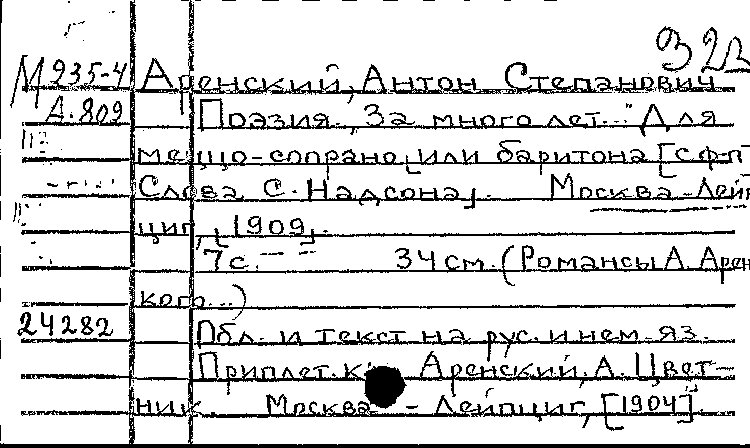 32
М 235-4 Аренский, Антон Степанович
А.809 Поэзия. „За много лет..." Для
меццо-сопрано [или баритона [с ф-п
Слова С. Надсона]. Москва-Лейп
циг, [1909].
7 с. 34 см. (Романсы А. Арен
кого...)
24282 Обл. и текст на рус. и нем. яз.
Приплет. к: Аренский, А. Цвет-
ник. Москва - Лейпциг, [1904].